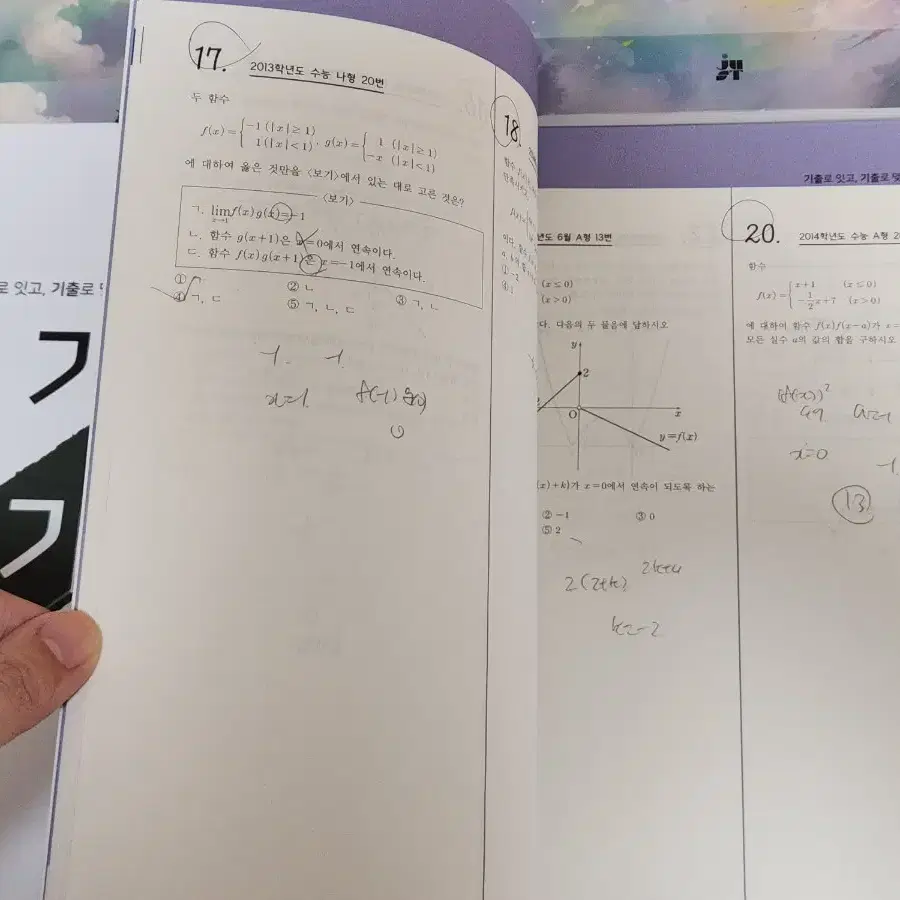 17.
2013학년도 수능 나형 20번
두 함수
f(x)={-1 (|x|≥1) 1 (|x|<1), g(x)={1 (|x|≥1) -x (|x|<1)
에 대하여 옳은 것만을 <보기>에서 있는 대로 고른 것은?
<보기>
ㄱ. lim f(x)g(x)=-1
ㄴ. 함수 g(x+1)은 x=0에서 연속이다.
ㄷ. 함수 f(x)g(x+1)은 x=-1에서 연속이다.
① ㄱ
② ㄴ
③ ㄱ, ㄴ
④ ㄱ, ㄷ
⑤ ㄱ, ㄴ, ㄷ
-1. -1.
x=-1. f(-1)
18.
함수
② -1
③ 0
⑤ 2
년도 6월 A형 13번
(x≤0)
(x>0)
다. 다음의 두 물음에 답하시오
y
2
O
x
y=f(x)
(x)+k)가 x=0에서 연속이 되도록 하는
2(2+k)
k=-2
기출로 잇고, 기출로 맞
20.
2014학년도 수능 A형 2
함수
f(x)={x+1 (x≤0) -1/2x+7 (x>0)
에 대하여 함수 f(x)f(x-a)가 x=
모든 실수 a의 값의 합을 구하시오
(f(x))²
x=0
-1.
13
로 잇고, 기출로
기
기